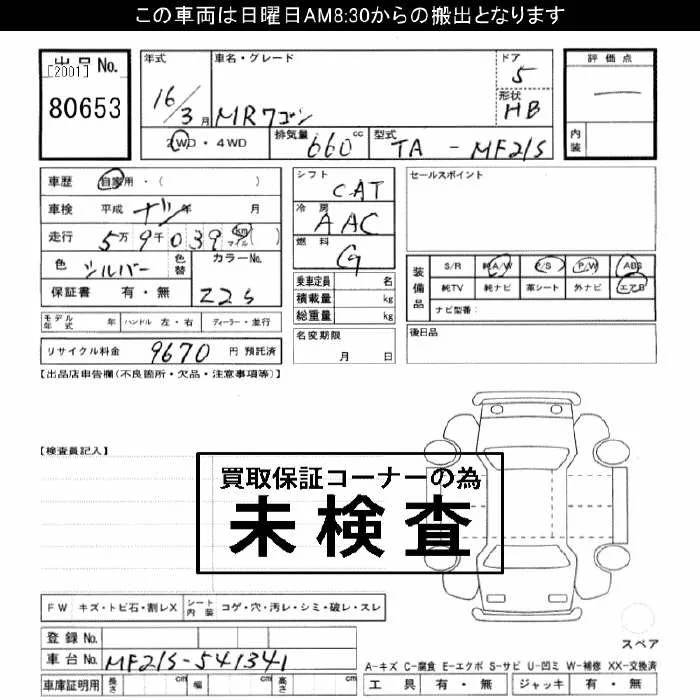 この車両は日曜日AM8:30からの搬出となります
出品No.
[2001]
80653
年式
16/3月
車名・グレード
MRワゴン
ドア
5
形状
HB
評価点
—
内装
2WD・4WD
排気量
660cc
型式
TA - MF21S
車歴 自家用・( )
車検 平成 ナシ 年 月
走行 5万9千039 km マイル ( )
色 シルバー 色替
カラーNo.
22S
保証書 有・無
モデル年式 年 ハンドル 左・右 ディーラー・並行
リサイクル料金 9670 円 預託済
シフト
CAT
冷房
AAC
燃料
G
乗車定員 名
積載量 kg
総重量 kg
名変期限
月 日
セールスポイント
装備品
S/R 純A/W P/S P/W ABS
純TV 純ナビ 革シート 外ナビ エアB
ナビ型番:
後日品
【出品店申告欄(不良箇所・欠品・注意事項等)】
【検査員記入】
買取保証コーナーの為
未検査
FW キズ・トビ石・割レX シート内装 コゲ・穴・汚レ・シミ・破レ・スレ
登録No.
車台No. MF21S-541341
車庫証明用 長さ cm 幅 cm 高さ cm
スペア
A-キズ C-腐食 E-エクボ S-サビ U-凹ミ W-補修 XX-交換済
工具 有・無 ジャッキ 有・無